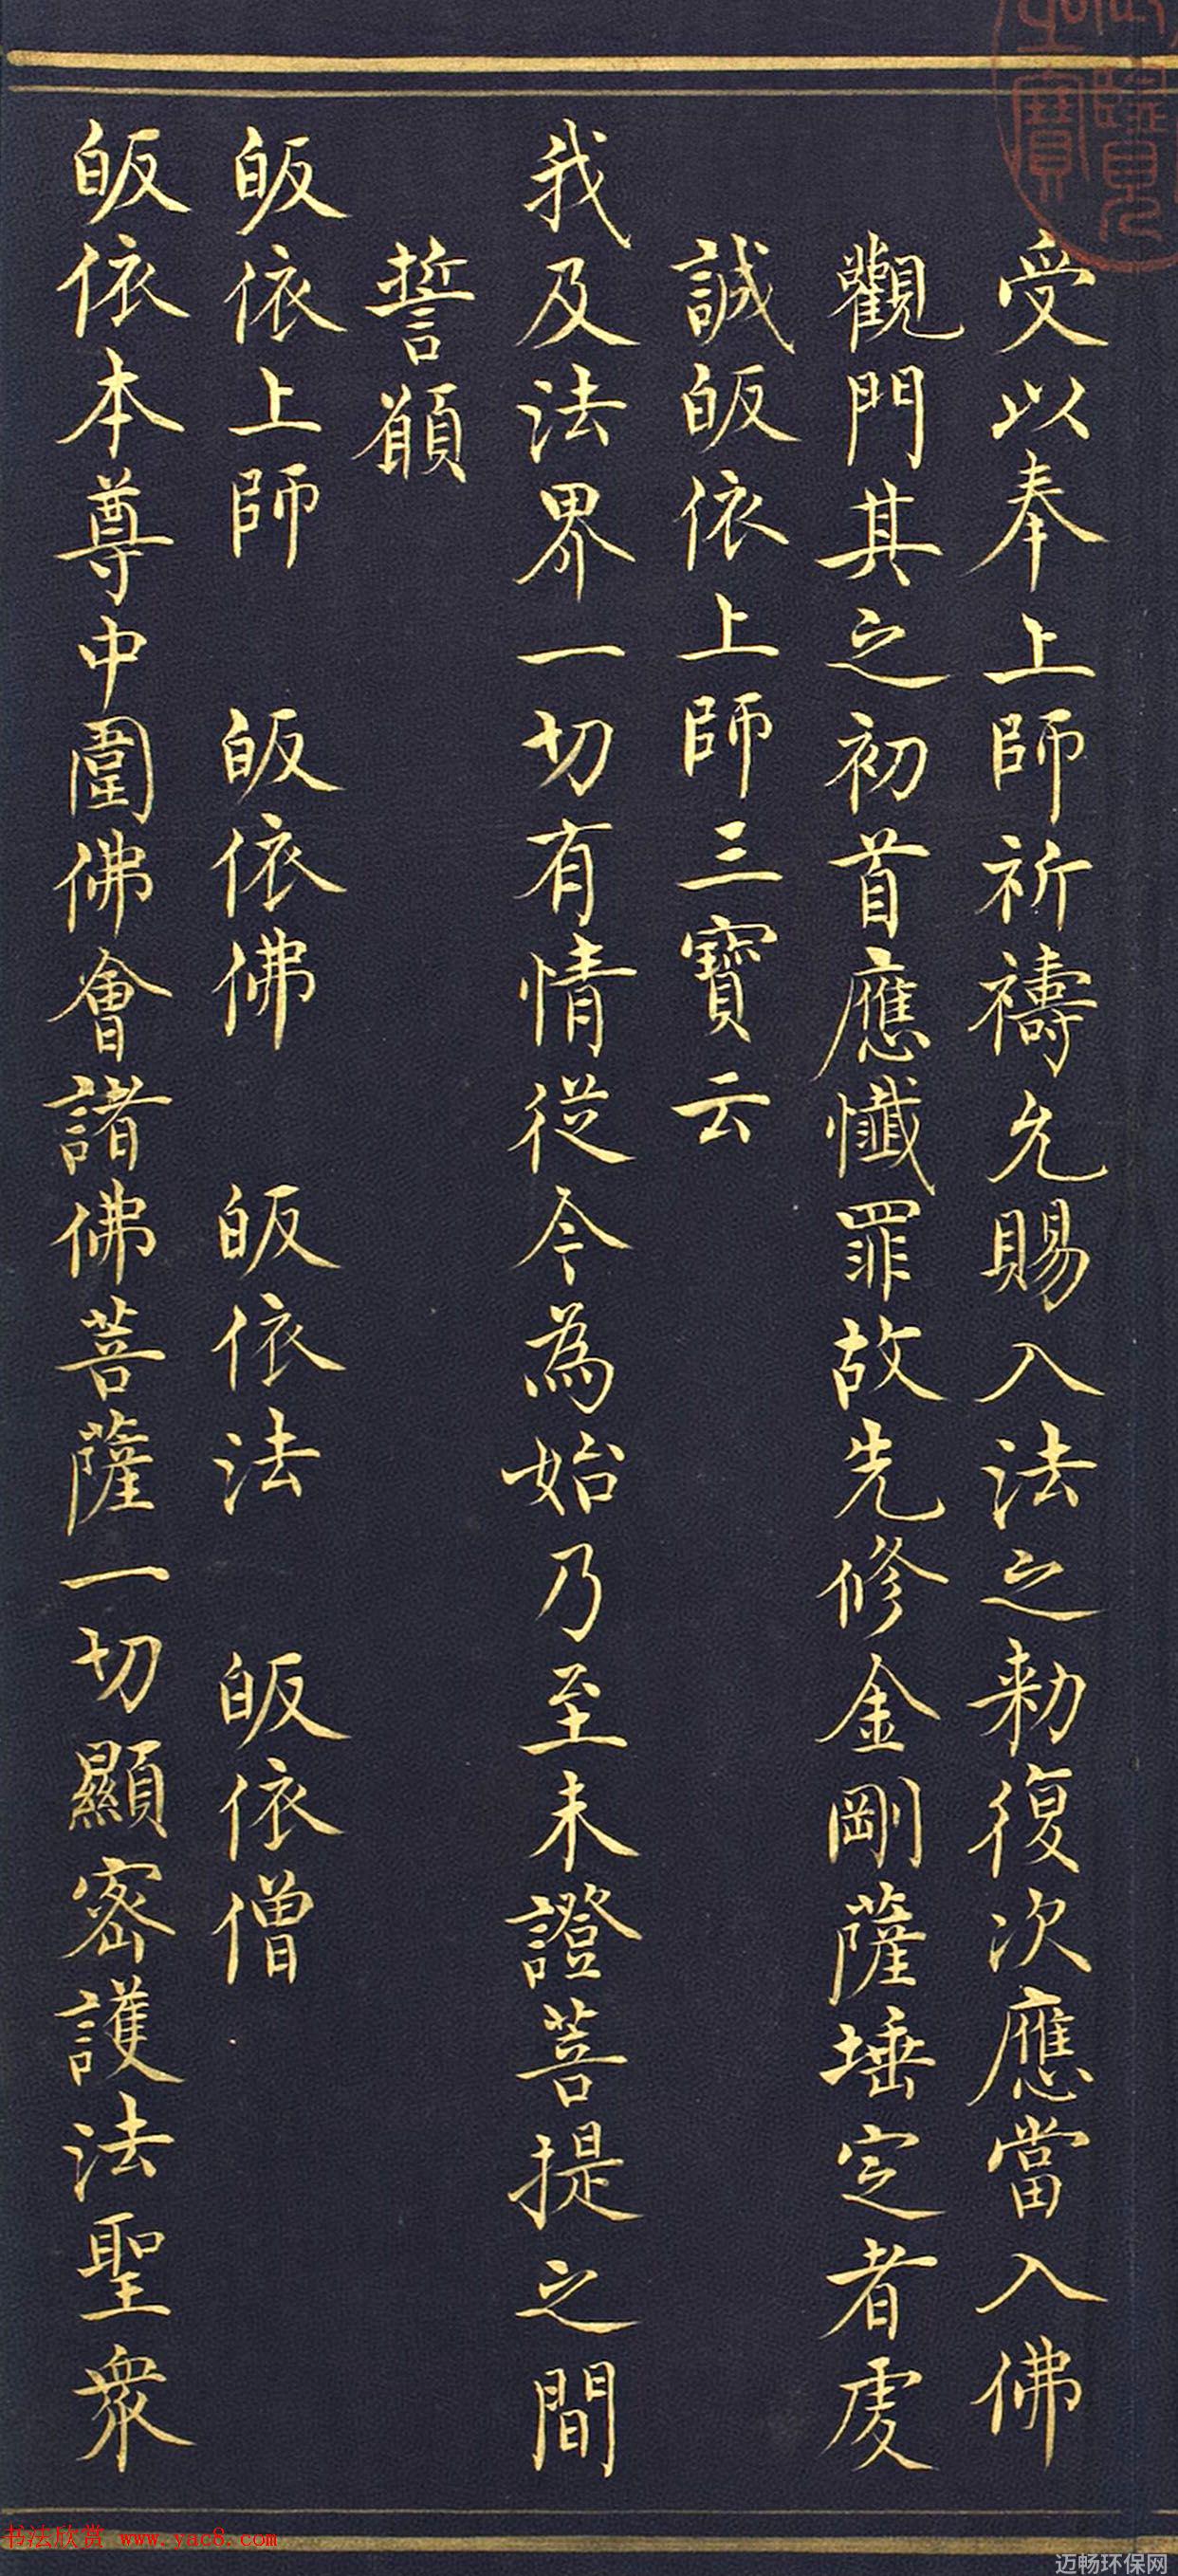 受以奉上師祈禱允賜入法之勑復次應當入佛
觀門其之初首應懺罪故先修金剛薩埵定者虔
誠皈依上師三寶云
我及法界一切有情從今為始乃至未證菩提之間
誓願
皈依上師 皈依佛 皈依法 皈依僧
皈依本尊中圍佛會諸佛菩薩一切顯密護法聖眾
书法欣赏 www.yac8.com
迈畅环保网